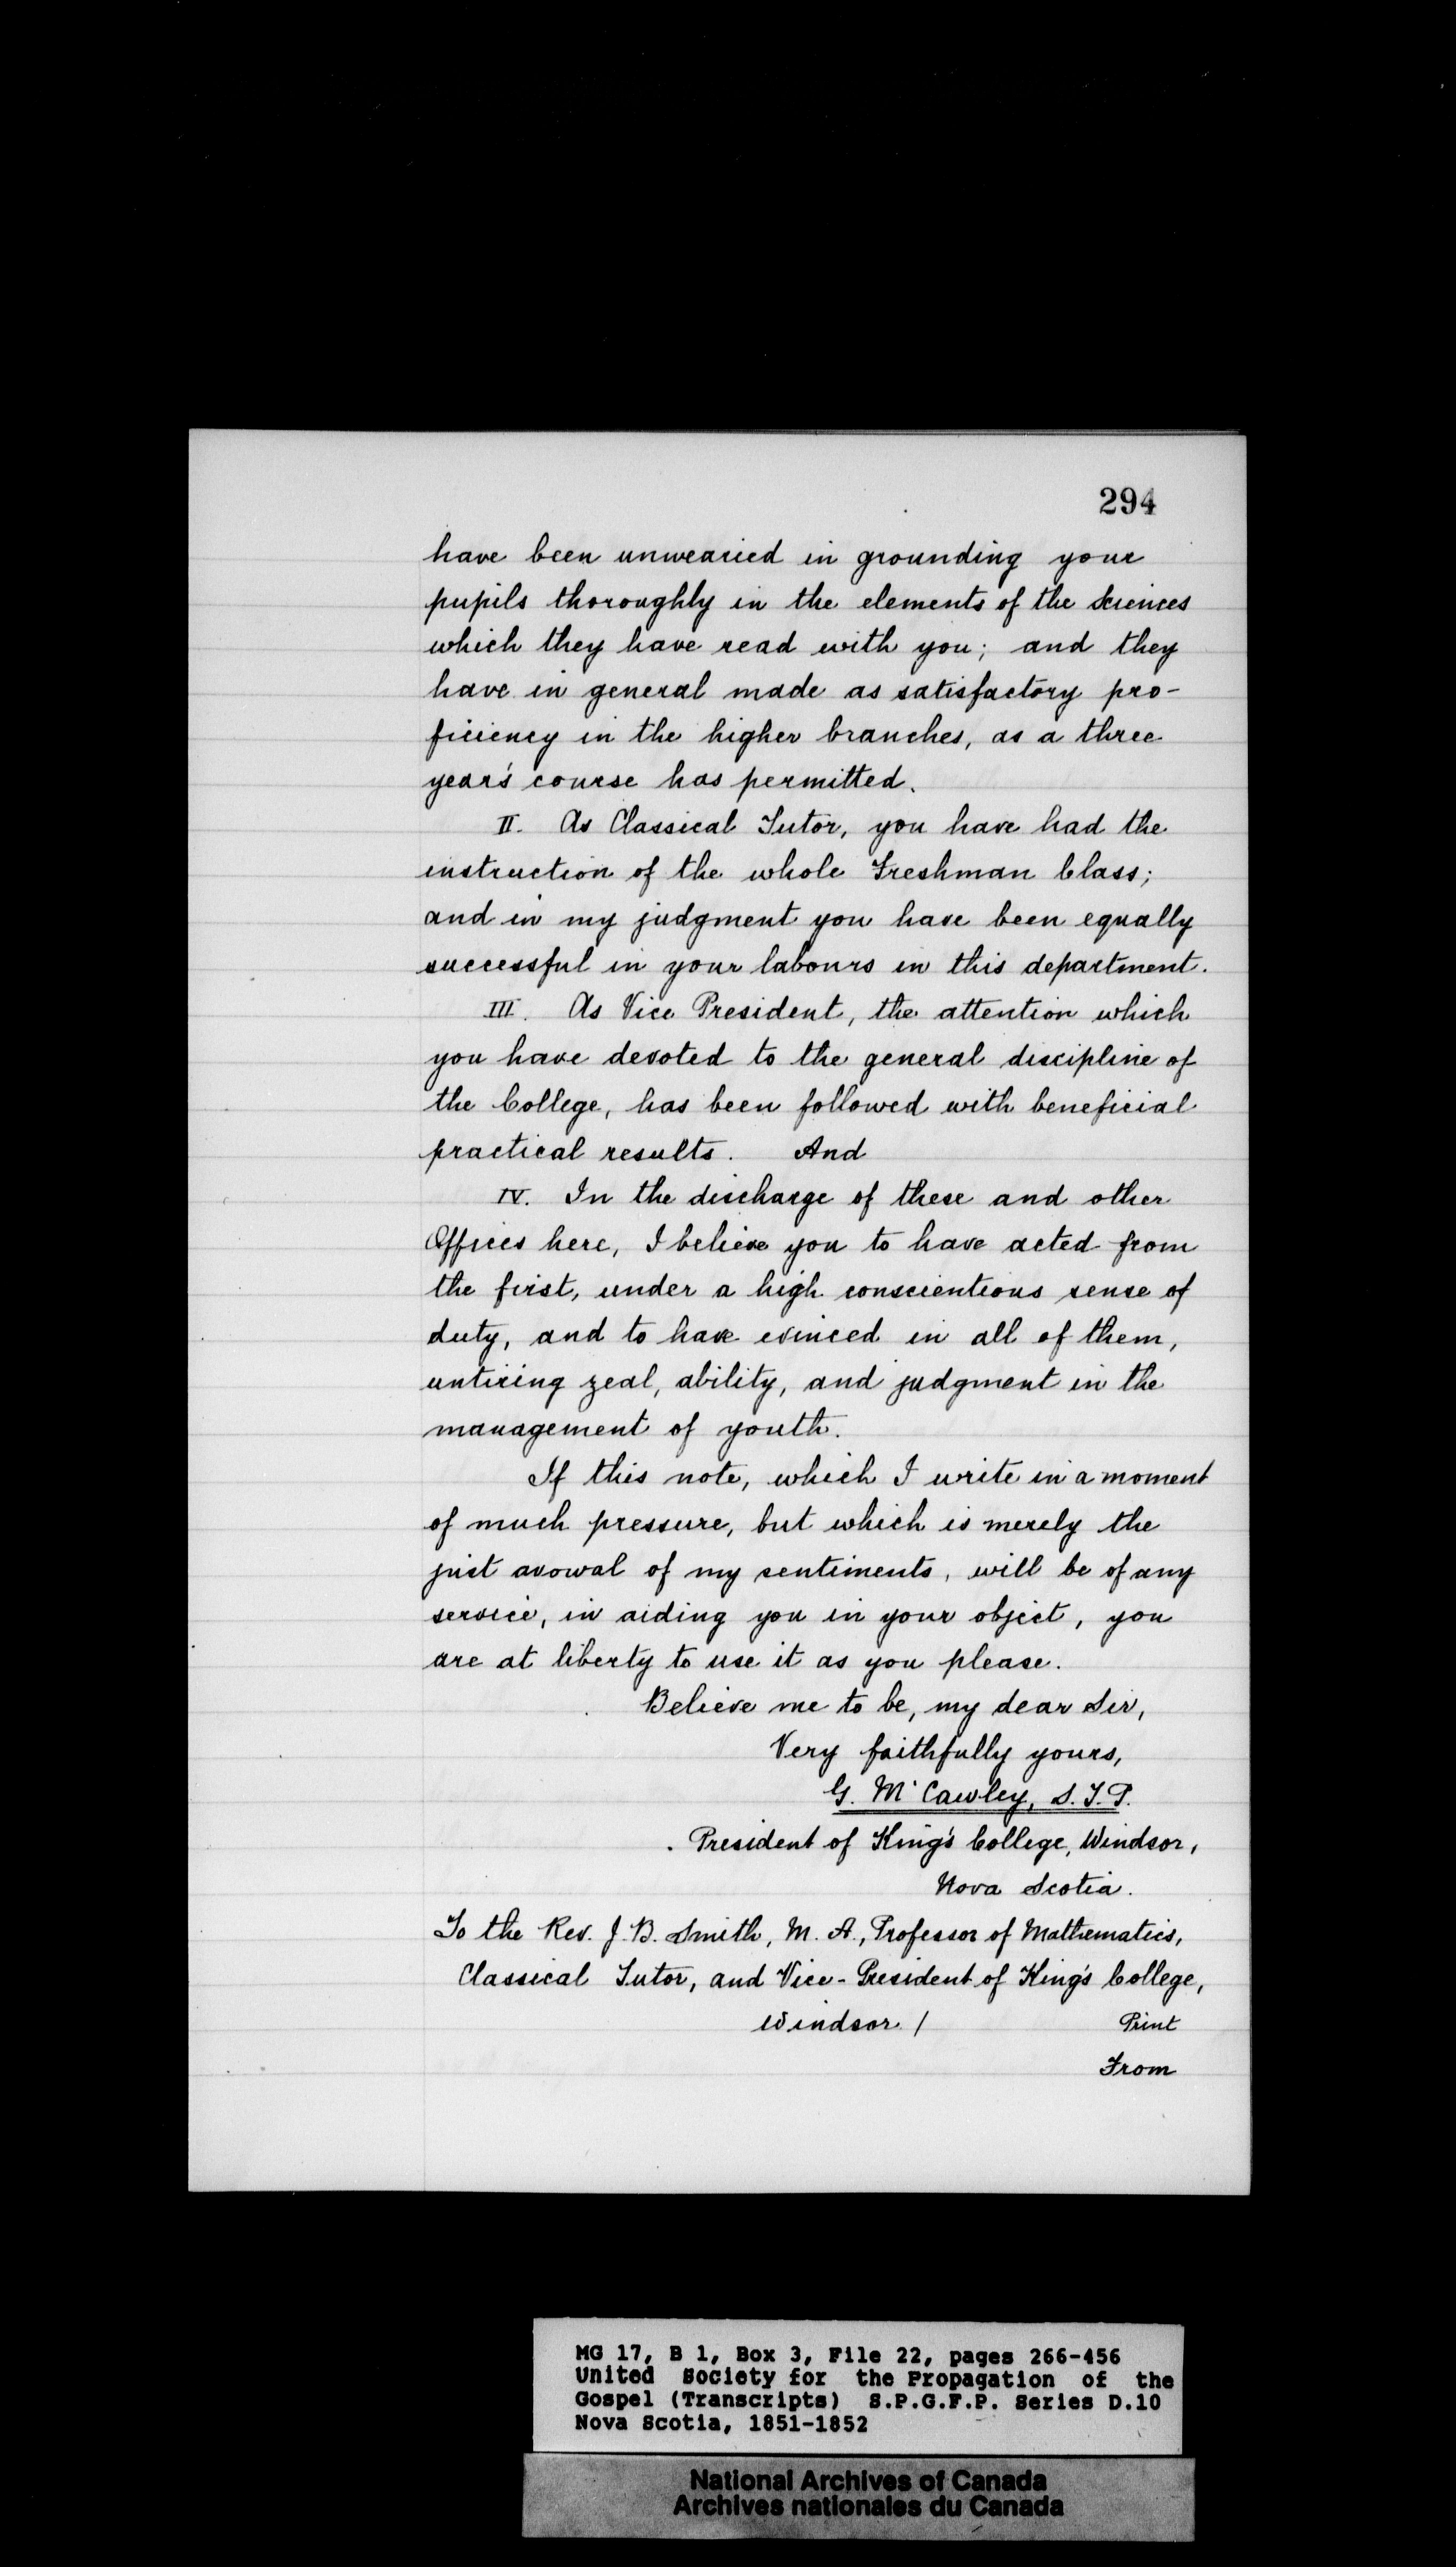 294
have been unwearied in grounding your
pupils thoroughly in the elements of the Sciences
which they have read with you; and they
have in general made as satisfactory pro-
ficiency in the higher branches, as a three
year's course has permitted.
II. As Classical Tutor, you have had the
instruction of the whole Freshman Class;
and in my judgment you have been equally
successful in your labours in this department.
III. As Vice President, the attention which
you have devoted to the general discipline of
the College, has been followed with beneficial
practical results. And
IV. In the discharge of these and other
Offices here, I believe you to have acted from
the first, under a high conscientious sense of
duty, and to have evinced in all of them,
untiring zeal, ability, and judgment in the
management of youth.
If this note, which I write in a moment
of much pressure, but which is merely the
just avowal of my sentiments, will be of any
service, in aiding you in your object, you
are at liberty to use it as you please.
Believe me to be, my dear Sir,
Very faithfully yours,
G. Mc Cawley, S.T.P.
President of King's College, Windsor,
Nova Scotia.
To the Rev. J. B. Smith, M. A., Professor of Mathematics,
Classical Tutor, and Vice-President of King's College,
Windsor / Print
From
MG 17, B 1, Box 3, File 22, pages 266-456
United Society for the Propagation of the
Gospel (Transcripts) S.P.G.F.P. Series D.10
Nova Scotia, 1851-1852
National Archives of Canada
Archives nationales du Canada